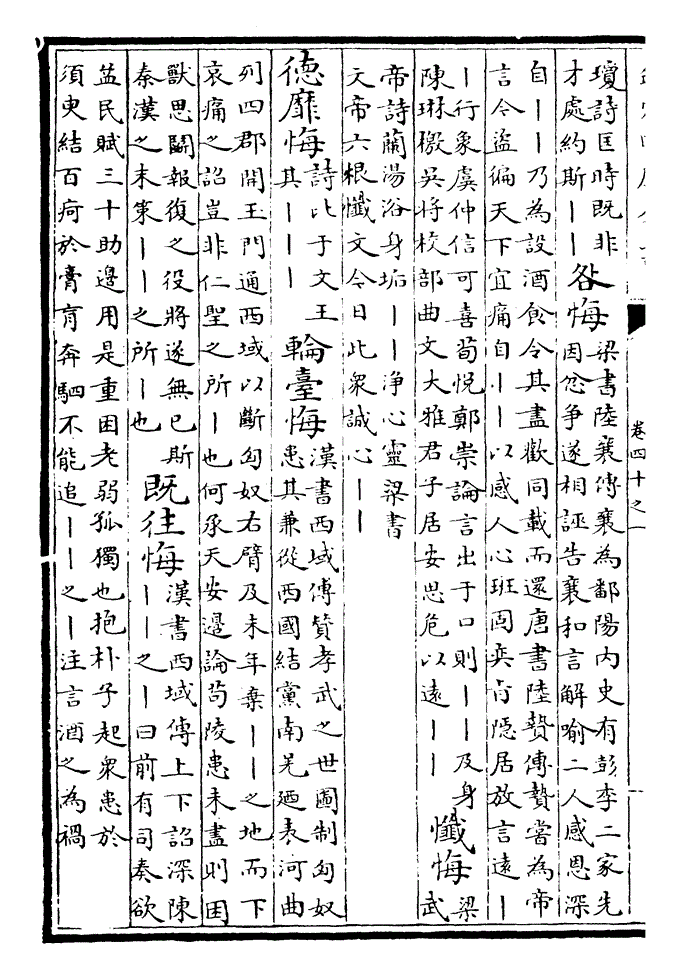 瓊詩匡時既非
才處約斯丨丨
咎悔
梁書陸襄傳襄為鄱陽内史有彭李二家先
因忿争遂相誣告襄和言解喻二人感恩深
自丨丨乃為設酒食令其盡歡同載而還唐書陸贄傳贄嘗為帝
言今盜徧天下宜痛自丨丨以感人心班固奕㫖隱居放言遠丨
丨行象虞仲信可喜荀悦鄭崇論言出于口則丨丨及身
陳琳檄吳將校部曲文大雅君子居安思危以遠丨丨
懺悔
梁
武
帝詩蘭湯浴身垢丨丨净心靈梁書
文帝六根懺文今日此衆誠心丨丨
德靡悔
詩比于文王
其丨丨丨
輪臺悔
漢書西域傳贊孝武之世圖制匈奴
患其兼從西國結黨南羌廼表河曲
列四郡開玉門通西域以斷匈奴右臂及末年棄丨丨之地而下
哀痛之詔豈非仁聖之所丨也何承天安邊論苟陵患未盡則困
獸思鬬報復之役將遂無已斯
秦漢之末策丨丨之所丨也
既往悔
漢書西域傳上下詔深陳
丨丨之丨曰前有司奏欲
益民賦三十助邊用是重困老弱孤獨也抱朴子起衆患於
須臾結百疴於膏肓奔駟不能追丨丨之丨注言酒之為禍
卷四十之一